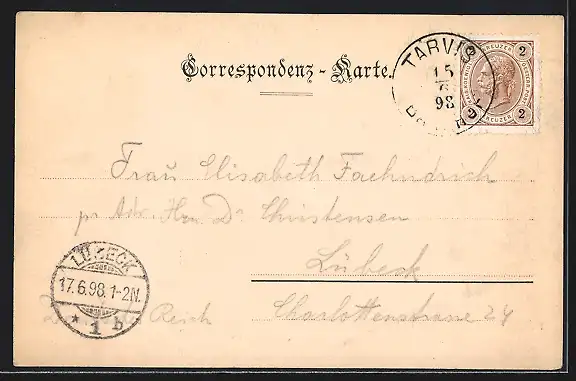 Correspondenz - Karte.
TARVIS
15
6
98
2 KREUZER 2
2 KREUZER 2
Frau Elisabeth Fachndrich
pr Adr. Hrn Dr Christensen
Lübeck
Charlottenstrasse 24
Reich
LÜBECK
17.6.98.1-2N.
* 1 b